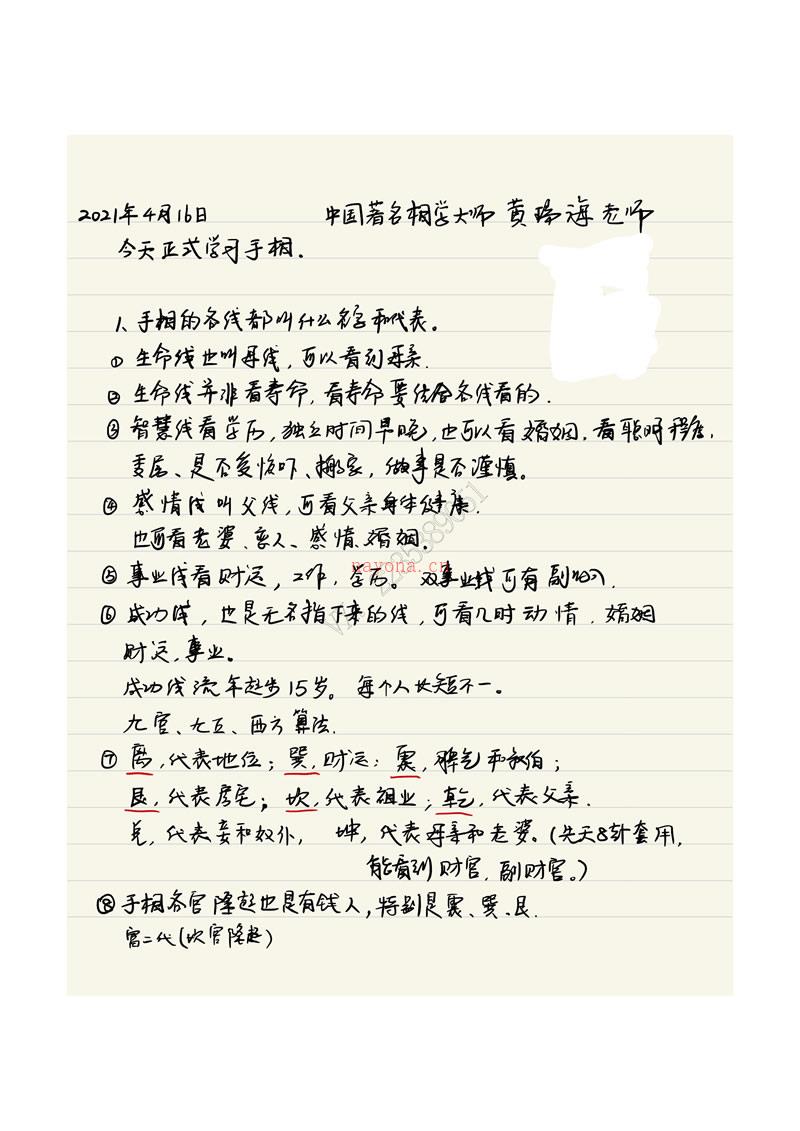 2021年4月16日 中国著名相学大师 黄 海老师
今天正式学习手相.
1、手相的各线都叫什么名字和代表。
① 生命线也叫母线，可以看到母亲.
② 生命线并非看寿命，看寿命要结合各线看的.
③ 智慧线看学历，独立时间早晚，也可以看婚姻.看聪明程度，
是否受惊吓、搬家，做事是否谨慎。
④ 感情线叫父线，可看父亲身体健康.
也可看老婆、恋人、感情、婚姻.
⑤ 事业线看财运，工作，学历。双事业线可有副
⑥ 成功线，也是无名指下来的线，可看几时动情.婚姻
财运，事业。
成功线流年起步15岁。每个人长短不一。
九宫、九五、西方算法.
⑦ 离，代表地位；巽，财运；震，脾气和叔伯；
艮，代表房宅；坎，代表祖业；乾，代表父亲.
兑，代表妾和奴仆， 坤，代表母亲和老婆。(先天8卦套用，
能看到财官，副财官。)
⑧ 手相各宫隆起也是有钱人，特别是震、巽、艮.
富二代(坎宫隆起)
nayona.cn